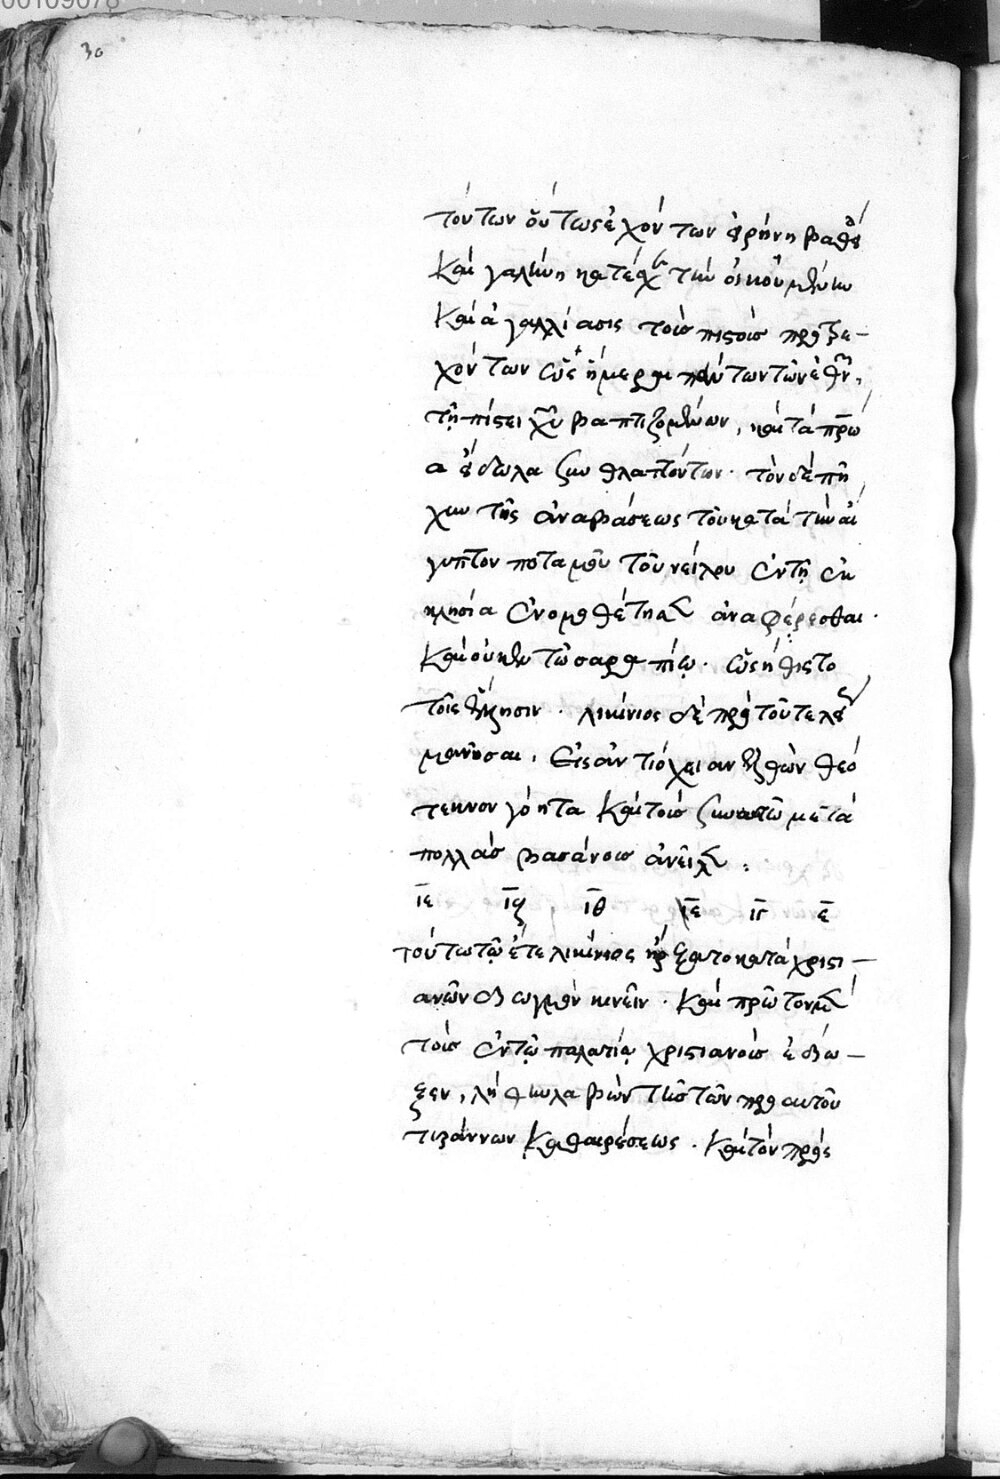 00109078
30
τούτων οὕτως ἐχόντων εἰρήνη βαθεῖα
καὶ γαλήνη κατέχει τὴν οἰκουμένην
καὶ ἀγαλλίασις τοῖς πιστοῖς προσε-
χόντων ὡς ἡμέραι πάντων τῶν ἐθνῶν,
τῇ πίστει χυ βαπτιζομένων, καὶ τὰ πρῶ
α εἴδωλα συνθλαττόντων. τὸν δὲ πῆ
χυν τῆς ἀναβάσεως τοῦ κατὰ τὴν αἴ
γυπτον ποταμοῦ τοῦ νείλου ἐν τῇ ἐκ
κλησία ἐνομοθέτησεν ἀναφέρεσθαι.
καὶ οὐκ ἐν τῶ σαραπίῳ. ὡς ἤθιστο
τοῖς ἕλλησιν. λικίνιος δὲ πρὸ τοῦ τελεί
μανῆσαι, εἰς ἀντιόχειαν ἐλθὼν θεό
τεκνον γόητα καὶ τοὺς σὺν αὐτῶ μετὰ
πολλὰς βασάνους ἀνεῖλεν:
ιε ις ιθ ιε ιγ ε
τούτω τῷ ἔτει λικίνιος ἤρξατο κατὰ χριστι-
ανῶν διωγμὸν κινεῖν. καὶ πρῶτον μὲν
τοὺς ἐν τῷ παλατίῳ χριστιανοὺς ἐδίω-
ξεν, λήθην λαβὼν τῆς τῶν πρὸ αυτοῦ
τυράννων καθαιρέσεως. καὶ τὸν πρὸς